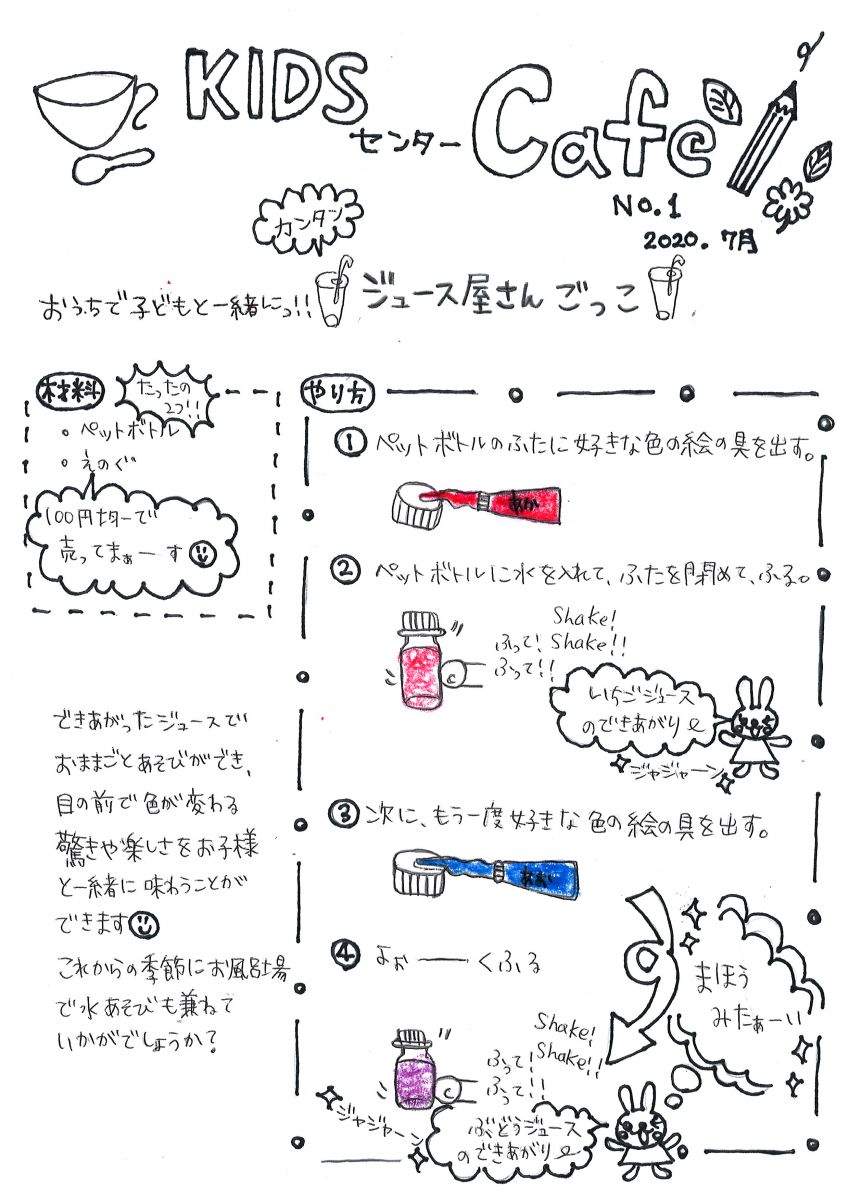 KIDS
センター Cafe
No.1
2020.7月
カンタン
おうちで子どもと一緒にっ!! ジュース屋さんごっこ
材料
たったの
2つ!!
・ペットボトル
・えのぐ
100円均一で
売ってまぁーす
できあがったジュースで
おままごとあそびができ、
目の前で色が変わる
驚きや楽しさをお子様
と一緒に味わうことが
できます
これからの季節にお風呂場
で水あそびも兼ねて
いかがでしょうか?
やり方
① ペットボトルのふたに好きな色の絵の具を出す。
あか
② ペットボトルに水を入れて、ふたを閉めて、ふる。
Shake!
ふって! Shake!!
ふって!!
いちごジュース
のできあがり
ジャジャーン
③ 次に、もう一度好きな色の絵の具を出す。
あお
④ よぉーーくふる
Shake!
ふって! Shake!!
ふって!!
ジャジャーン
ぶどうジュース
のできあがり
まほう
みたぁーい